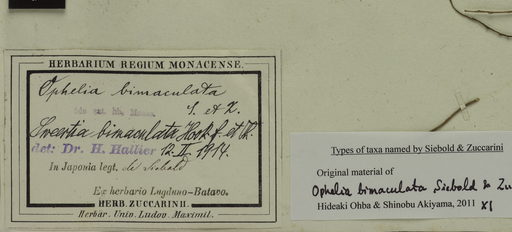 HERBARIUM REGIUM MONACENSE.
Ophelia bimaculata
S. et Z.
Swertia bimaculata Hook f. et Th.
det: Dr. H. Hallier 12. II. 1914.
In Japonia legt. de Siebold
Ex herbario Lugduno-Batavo.
HERB. ZUCCARINII.
Herbar. Univ. Ludov. Maximil.
Types of taxa named by Siebold & Zuccarini
Original material of
Ophelia bimaculata Siebold & Zu
Hideaki Ohba & Shinobu Akiyama, 2011 XI